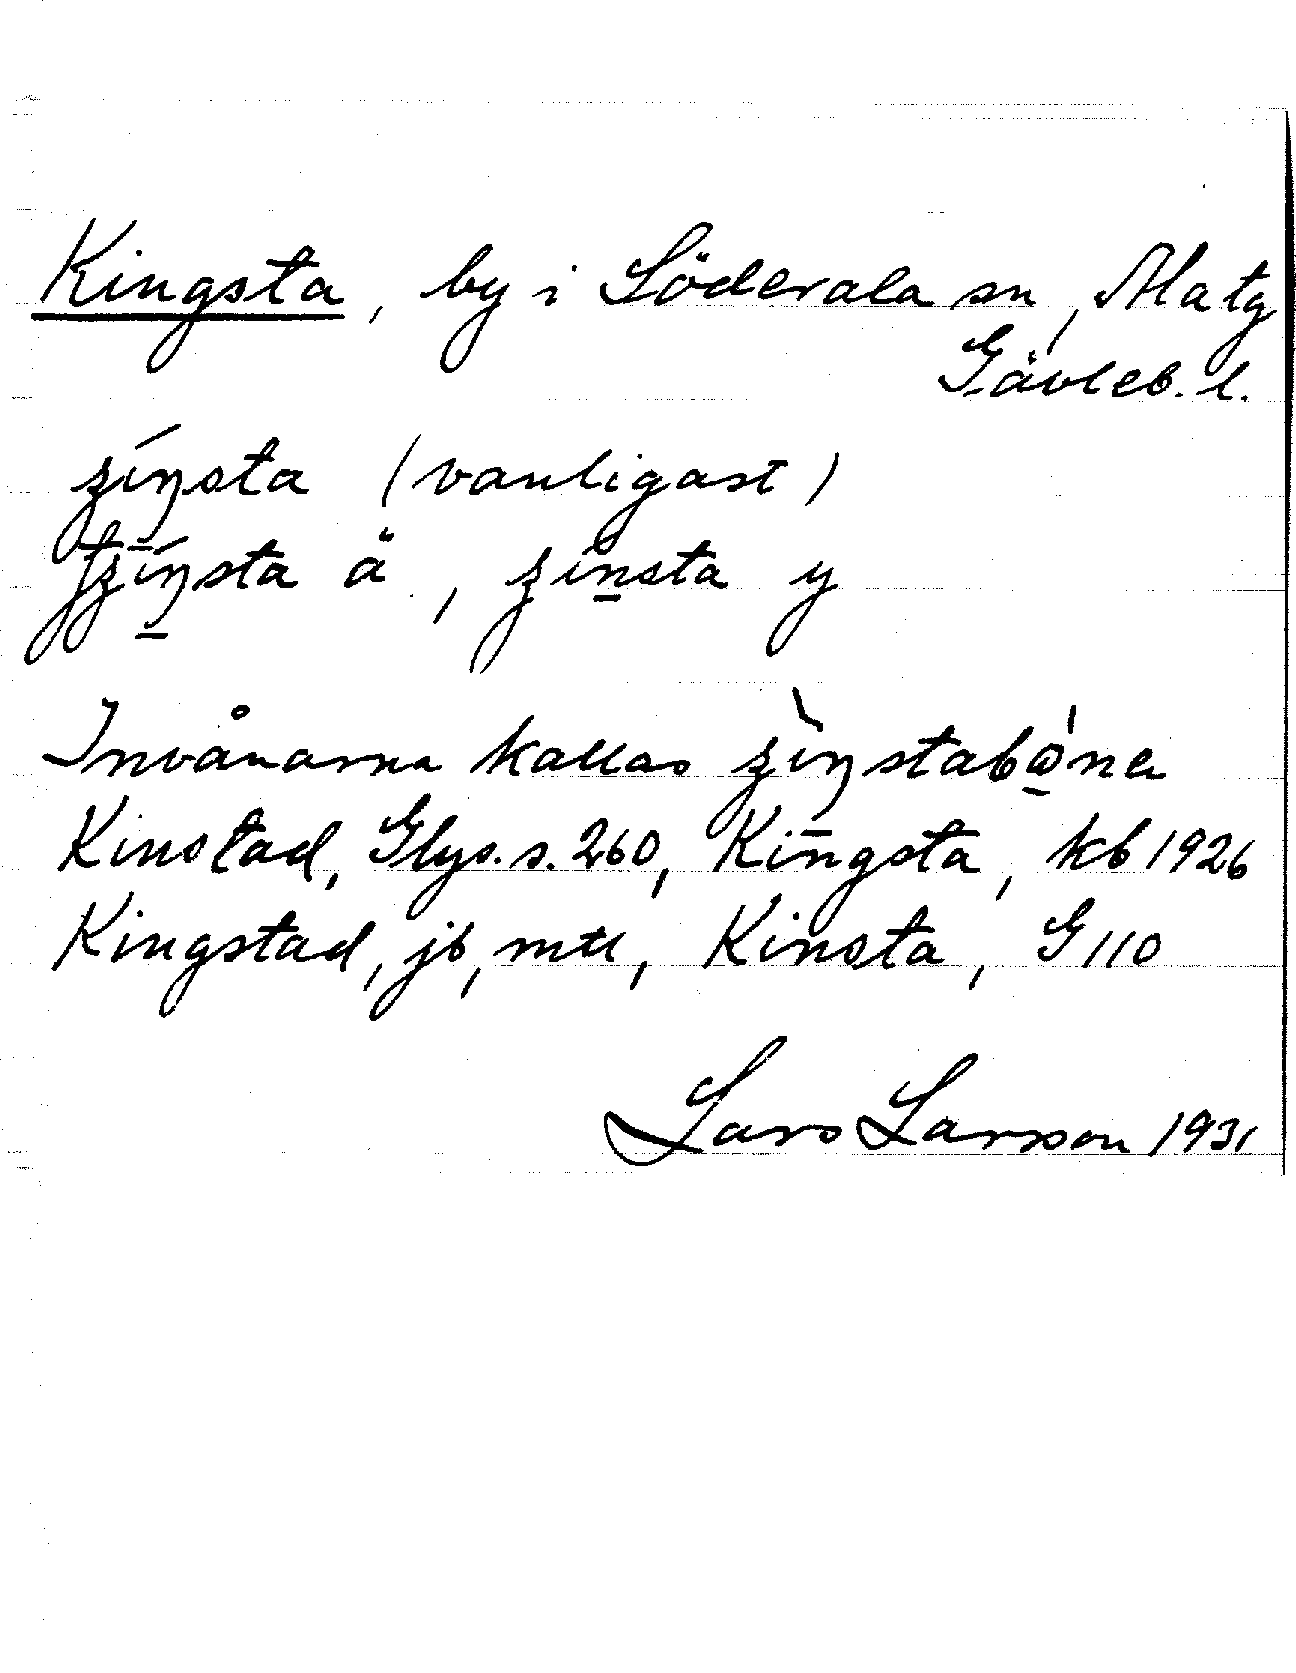 Kingsta, by i Söderala sn, Ala tg
Gävleb. l.
ʒíŋsta (vanligast)
tʒíŋsta ä, ʒínsta y
Invånarna kallas ʒìŋstabǫ́na
Kinstad, Glys. s. 260, Kingsta, kb 1926
Kingstad, jb, mtl, Kinsta, G 110
Lars Larsson 1931